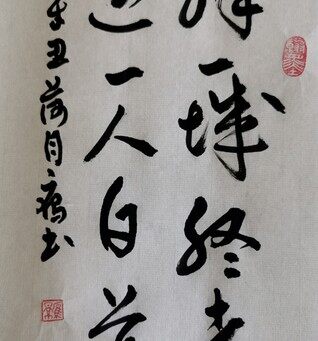 择一城终老
遇一人白首
辛丑荷月书